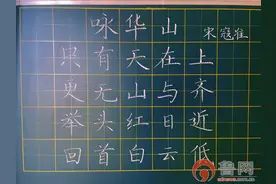 咏华山 宋寇准
只有天在上
更无山与齐
举头红日近
回首白云低
鲁网